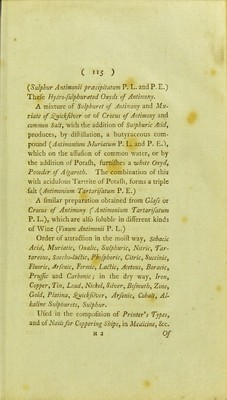 ( 115 )
(Sulphur Antimonii præcipitatum P. L. and P. E.)
These Hydro-sulphurated Oxyds of Antimony.
A mixture of Sulphuret of Antimony and Mu-
riate of Quicksilver or of Crocus of Antimony and
common Salt, with the addition of Sulphuric Acid,
produces, by distillation, a butyraceous com-
pound (Antimonium Muriatum P. L. and P. E.),
which on the affusion of common water, or by
the addition of Potash, furnishes a white Oxyd,
Powder of Algaroth. The combination of this
with acidulous Tartrite of Potash, forms a triple
salt (Antimonium Tartarisatum P. E.)
A similar preparation obtained from Glass or
Crocus of Antimony (Antimonium Tartarisatum
P. L.), which are also soluble in different kinds
of Wine (Vinum Antimonii P. L.)
Order of attraction in the moist way, Sebacic
Acid, Muriatic, Oxalic, Sulphuric, Nitric, Tar-
tareous, Saccho-lactic, Phosphoric, Citric, Succinic,
Fluoric, Arsenic, Formic, Lactic, Acetous, Boracic,
Prussic and Carbonic; in the dry way, Iron,
Copper, Tin, Lead, Nickel, Silver, Bismuth, Zinc,
Gold, Platina, Quicksilver, Arsenic, Cobalt, Al-
kaline Sulphurets, Sulphur.
Used in the composition of Printer's Types,
and of Nails for Coppering Ships, in Medicine, &c.
H 2 Of